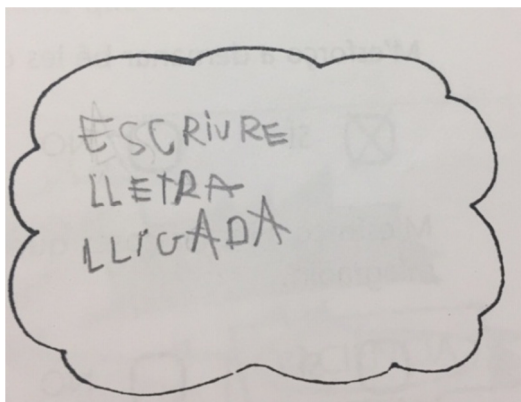 ESCRIURE
LLETRA
LLIGADA